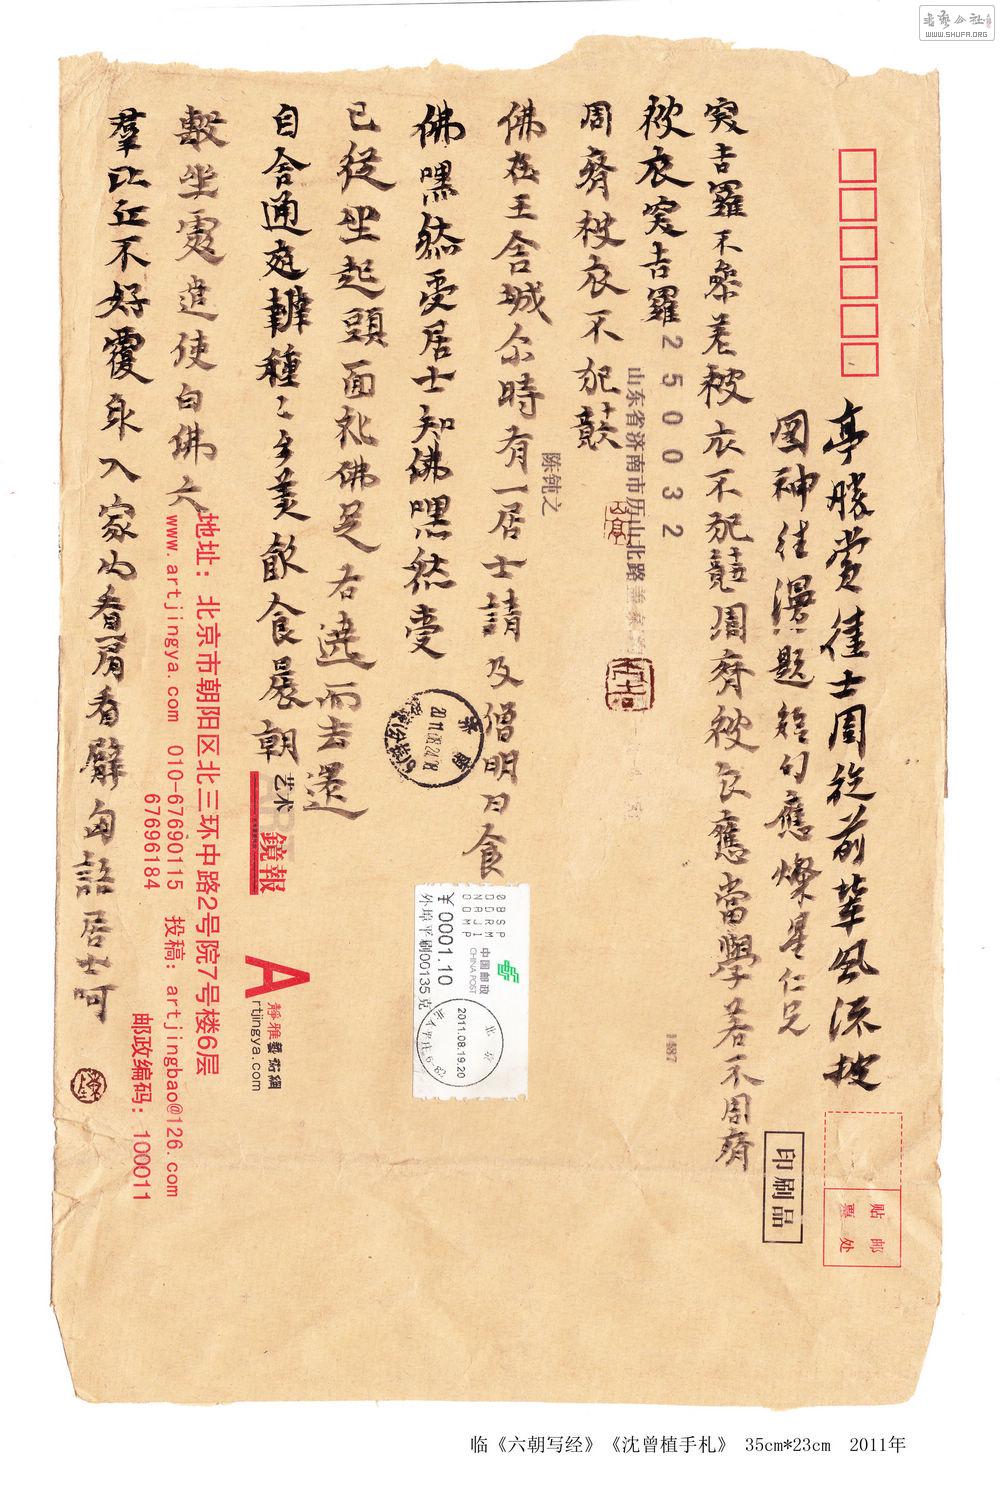 亭勝賞佳士周旋前輩風流披
图神往漫題短句應燦星仁兄
突吉羅不參差被衣不犯竟周齊被衣應當學若不周齊
被衣突吉羅
周齊被衣不犯竟
佛在王舍城尒時有一居士請及僧明日食
佛嘿然受居士知佛嘿然受
已從坐起頭面礼佛足右遶而去還
自舍通夜辦種〻多美飲食晨朝
敷坐處遣使白佛六
羣比丘不好覆身入家内看肩看臂自語居士呵
250032
山东省济南市历山北路
陈钝之
印刷品
贴邮
票处
1487
中国邮政
CHINA POST
0BSP
DDRM
NAJI
DDMP
¥0001.10
外埠平刷00135克
北京
2011.08.19.20
2011.08.20.18
艺术
鏡報
A
靜雅藝術網
rtjingya.com
地址：北京市朝阳区北三环中路2号院7号楼6层
www.artjingya.com 010-67690115 投稿：artjingbao@126.com
67696184
邮政编码：100011
书艺公社
WWW.SHUFA.ORG
临《六朝写经》《沈曾植手札》 35cm*23cm 2011年